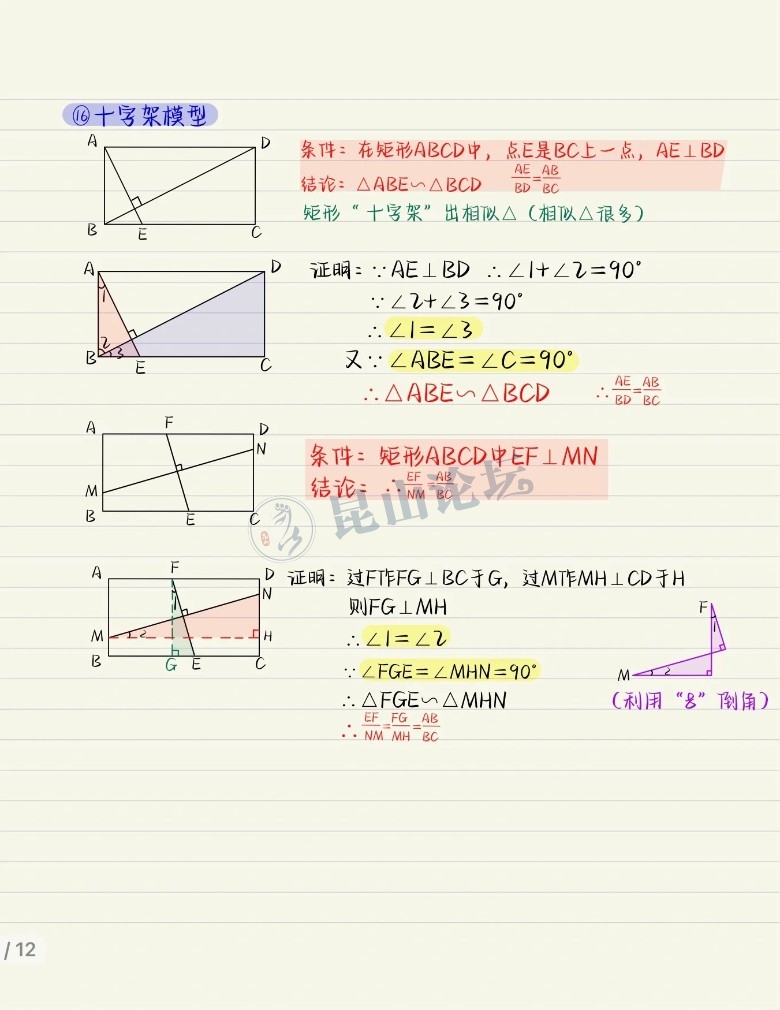 ⑯十字架模型
A D
B E C
条件：在矩形ABCD中，点E是BC上一点，AE⊥BD
结论：△ABE∽△BCD AE/BD=AB/BC
矩形“十字架”出相似△（相似△很多）
A D
1
2 3
B E C
证明：∵AE⊥BD ∴∠1+∠2=90°
∵∠2+∠3=90°
∴∠1=∠3
又∵∠ABE=∠C=90°
∴△ABE∽△BCD ∴AE/BD=AB/BC
A F D
N
M
B E C
条件：矩形ABCD中EF⊥MN
结论：∴EF/NM=AB/BC
昆山论坛
A F D
1 N
M 2 H
B G E C
证明：过F作FG⊥BC于G，过M作MH⊥CD于H
则FG⊥MH
∴∠1=∠2
∵∠FGE=∠MHN=90°
∴△FGE∽△MHN
∴EF/NM=FG/MH=AB/BC
F
1
M 2
（利用“8”倒角）
/ 12